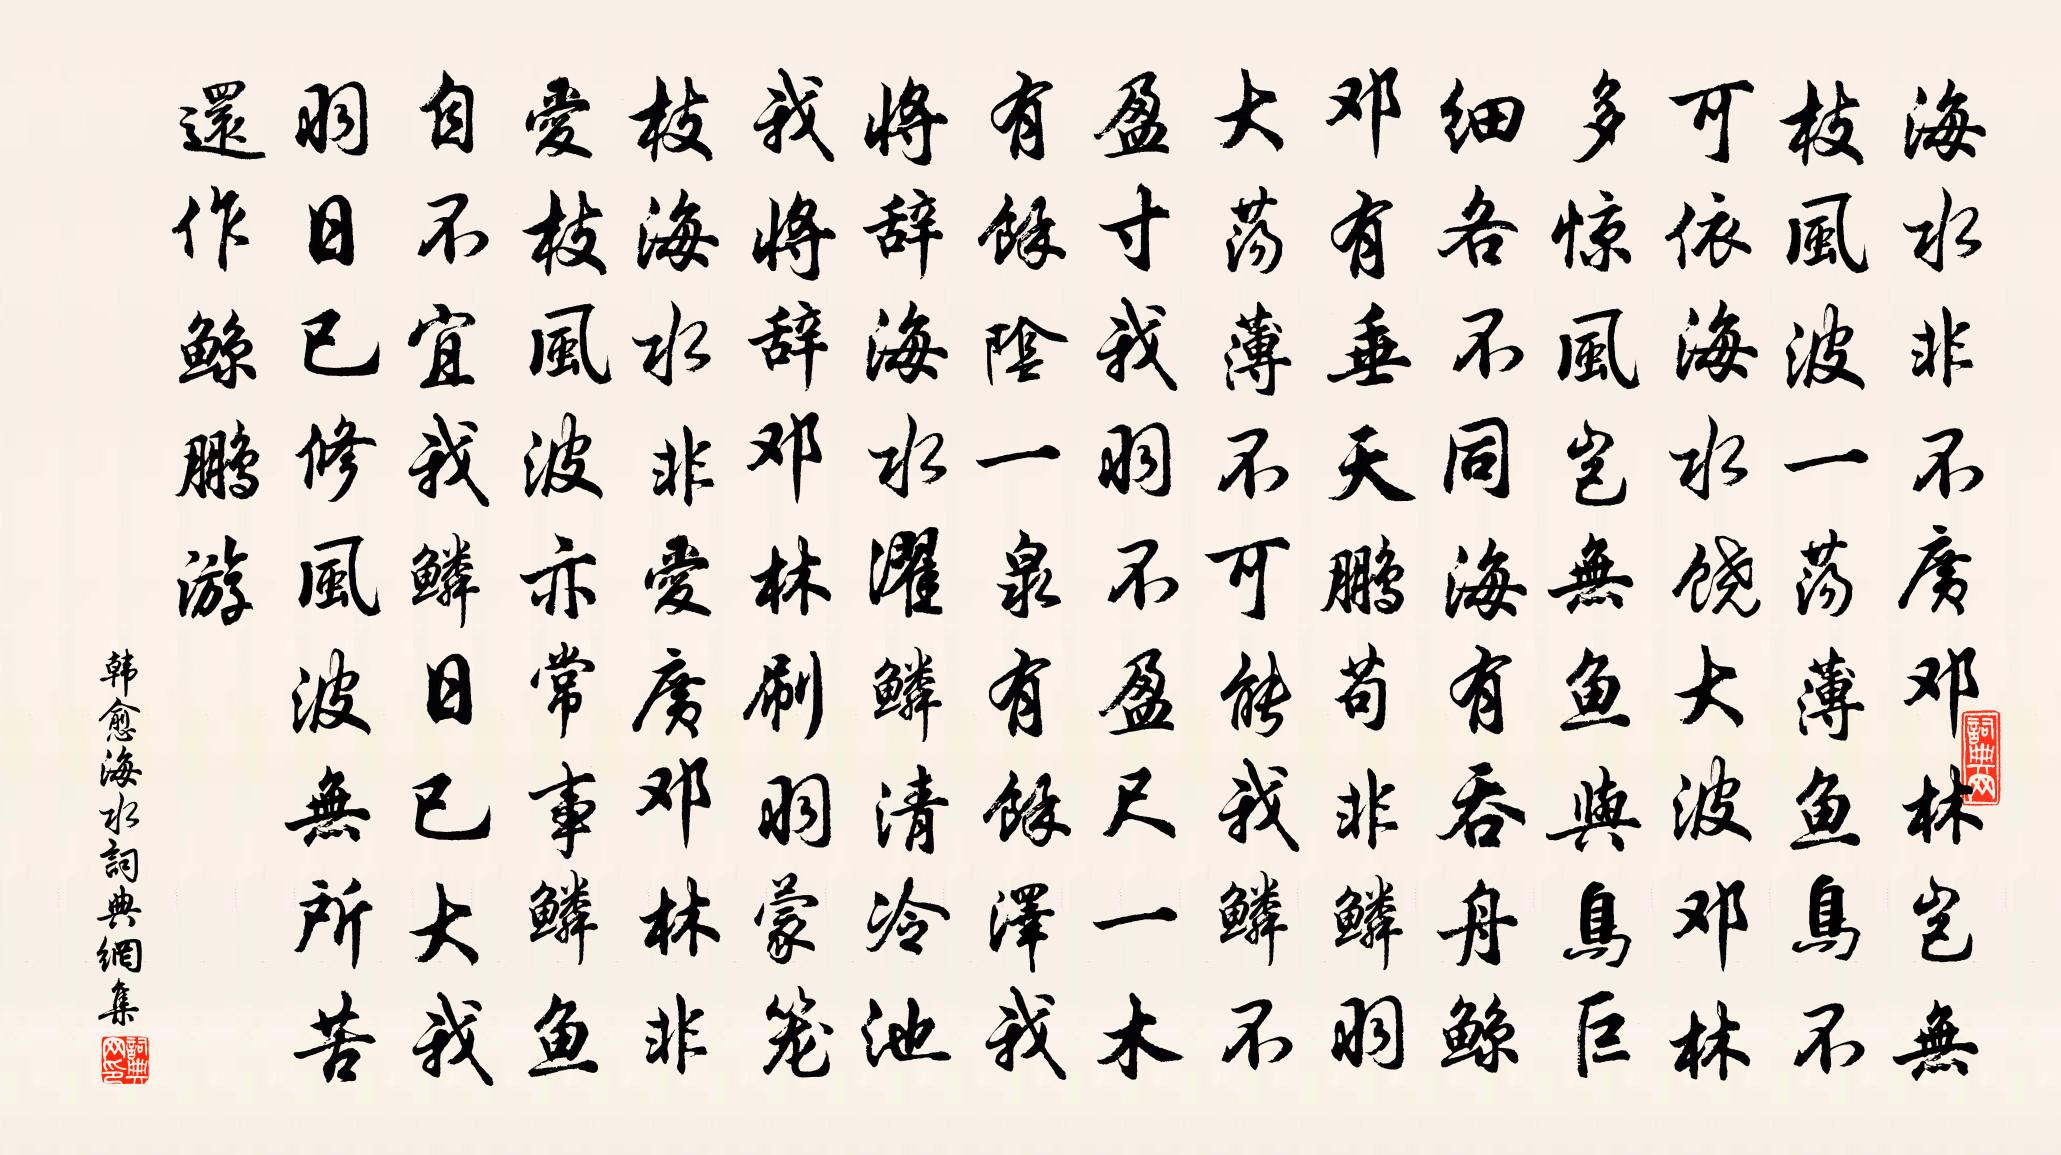 海水非不廣邓林岂無
枝風波一荡薄鱼鳥不
可依海水饶大波邓林
多惊風岂無鱼與鳥巨
细各不同海有吞舟鲸
邓有垂天鹏苟非鳞羽
大荡薄不可能我鳞不
盈寸我羽不盈尺一木
有餘陰一泉有餘澤我
将辞海水濯鳞清冷池
我将辞邓林刷羽蒙笼
枝海水非愛廣邓林非
愛枝風波亦常事鳞鱼
自不宜我鳞日已大我
羽日已修風波無所苦
還作鲸鹏游
韩愈海水詞典網集
詞典网
詞典网印